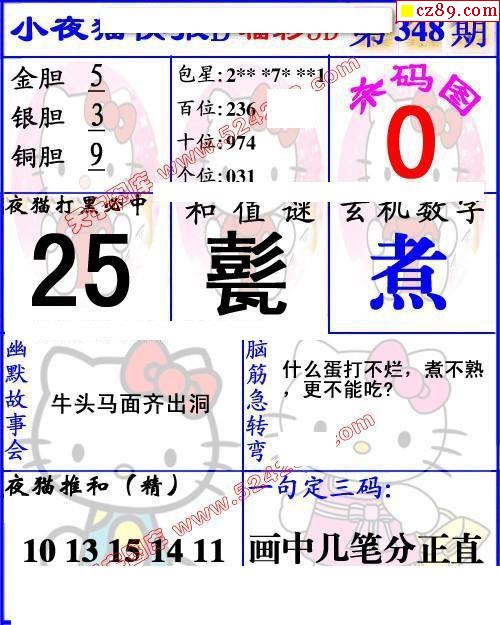 cz89.com
小夜猫快报D 福彩3D 第348期
金胆 5
银胆 3
铜胆 9
包星:2** *7* **1
百位:236
十位:974
个位:031
杀码图
0
夜猫打黑必中
25
和值谜
玄机数字
煮
幽默故事会
牛头马面齐出洞
脑筋急转弯
什么蛋打不烂，煮不熟
，更不能吃?
夜猫推和（精）
10 13 15 14 11
一句定三码:
画中几笔分正直